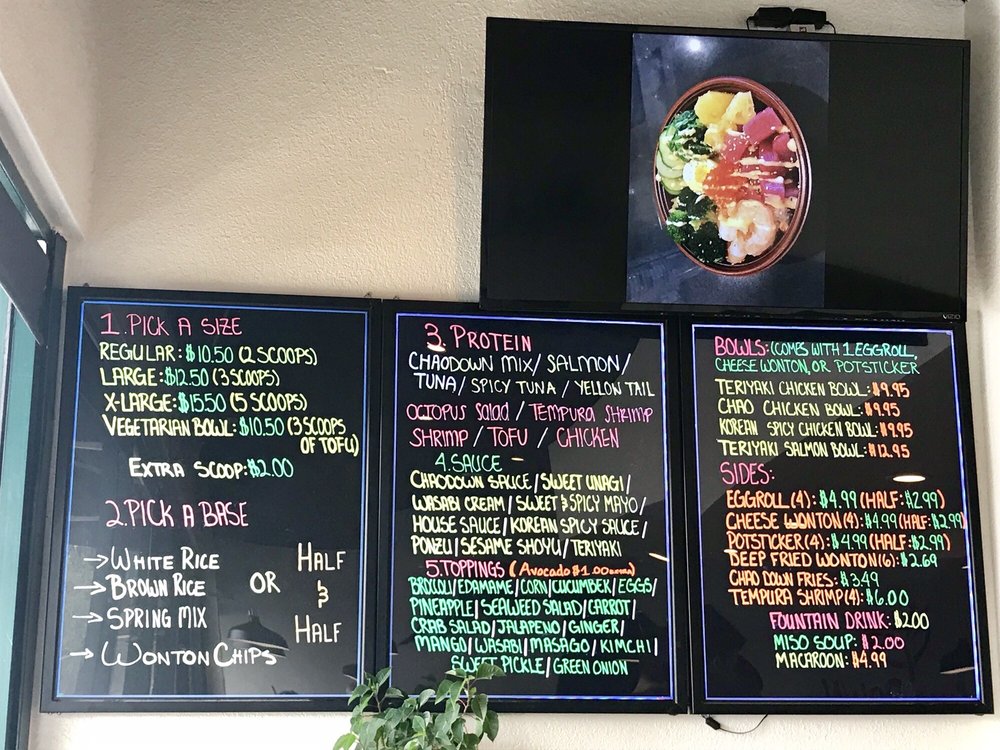 VIZIO
1. PICK A SIZE
REGULAR: $10.50 (2 SCOOPS)
LARGE: $12.50 (3 SCOOPS)
X-LARGE: $15.50 (5 SCOOPS)
VEGETARIAN BOWL: $10.50 (3 SCOOPS
OF TOFU)
EXTRA SCOOP: $2.00
2. PICK A BASE
→ WHITE RICE
→ BROWN RICE
→ SPRING MIX
→ WONTON CHIPS
OR
HALF
&
HALF
3. PROTEIN
CHAODOWN MIX / SALMON /
TUNA / SPICY TUNA / YELLOW TAIL
OCTOPUS SALAD / TEMPURA SHRIMP
SHRIMP / TOFU / CHICKEN
4. SAUCE
CHAODOWN SAUCE / SWEET UNAGI /
WASABI CREAM / SWEET & SPICY MAYO /
HOUSE SAUCE / KOREAN SPICY SAUCE /
PONZU / SESAME SHOYU / TERIYAKI
5. TOPPINGS (Avocado $1.00
BROCOLI / EDAMAME / CORN / CUCUMBER / EGGS /
PINEAPPLE / SEAWEED SALAD / CARROT /
CRAB SALAD / JALAPENO / GINGER /
MANGO / WASABI / MASAGO / KIMCHI /
SWEET PICKLE / GREEN ONION
BOWLS: (COMES WITH 1 EGGROLL,
CHEESE WONTON, OR POTSTICKER
TERIYAKI CHICKEN BOWL: $9.95
CHAO CHICKEN BOWL: $9.95
KOREAN SPICY CHICKEN BOWL: $9.95
TERIYAKI SALMON BOWL: $12.95
SIDES:
EGGROLL (4): $4.99 (HALF: $2.99)
CHEESE WONTON (4): $4.99 (HALF: $2.99)
POTSTICKER (4): $4.99 (HALF: $2.99)
DEEP FRIED WONTON (6): $2.69
CHAO DOWN FRIES: $3.49
TEMPURA SHRIMP (4): $6.00
FOUNTAIN DRINK: $2.00
MISO SOUP: $2.00
MACAROON: $4.99